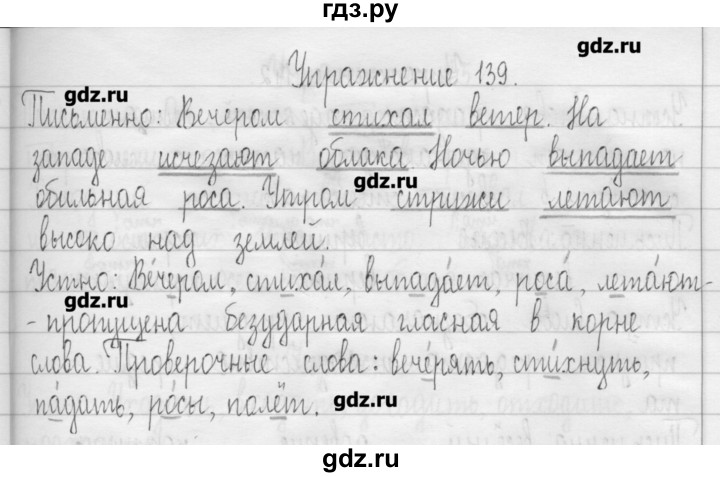 гдз.ру
gdz.ru
Упражнение 139.
gdz.ru
Письменно: Вечером стихал ветер. На
западе исчезают облака. Ночью выпадает
gdz.ru
обильная роса. Утром стрижи летают
высоко над землей.
Устно: Вечером, стихал, выпадает, роса, летают-
gdz.ru
- пропущена безударная гласная в корне
слова. Проверочные слова: вечерять, стихнуть,
падать, росы, полёт.
gdz.ru
gdz.ru